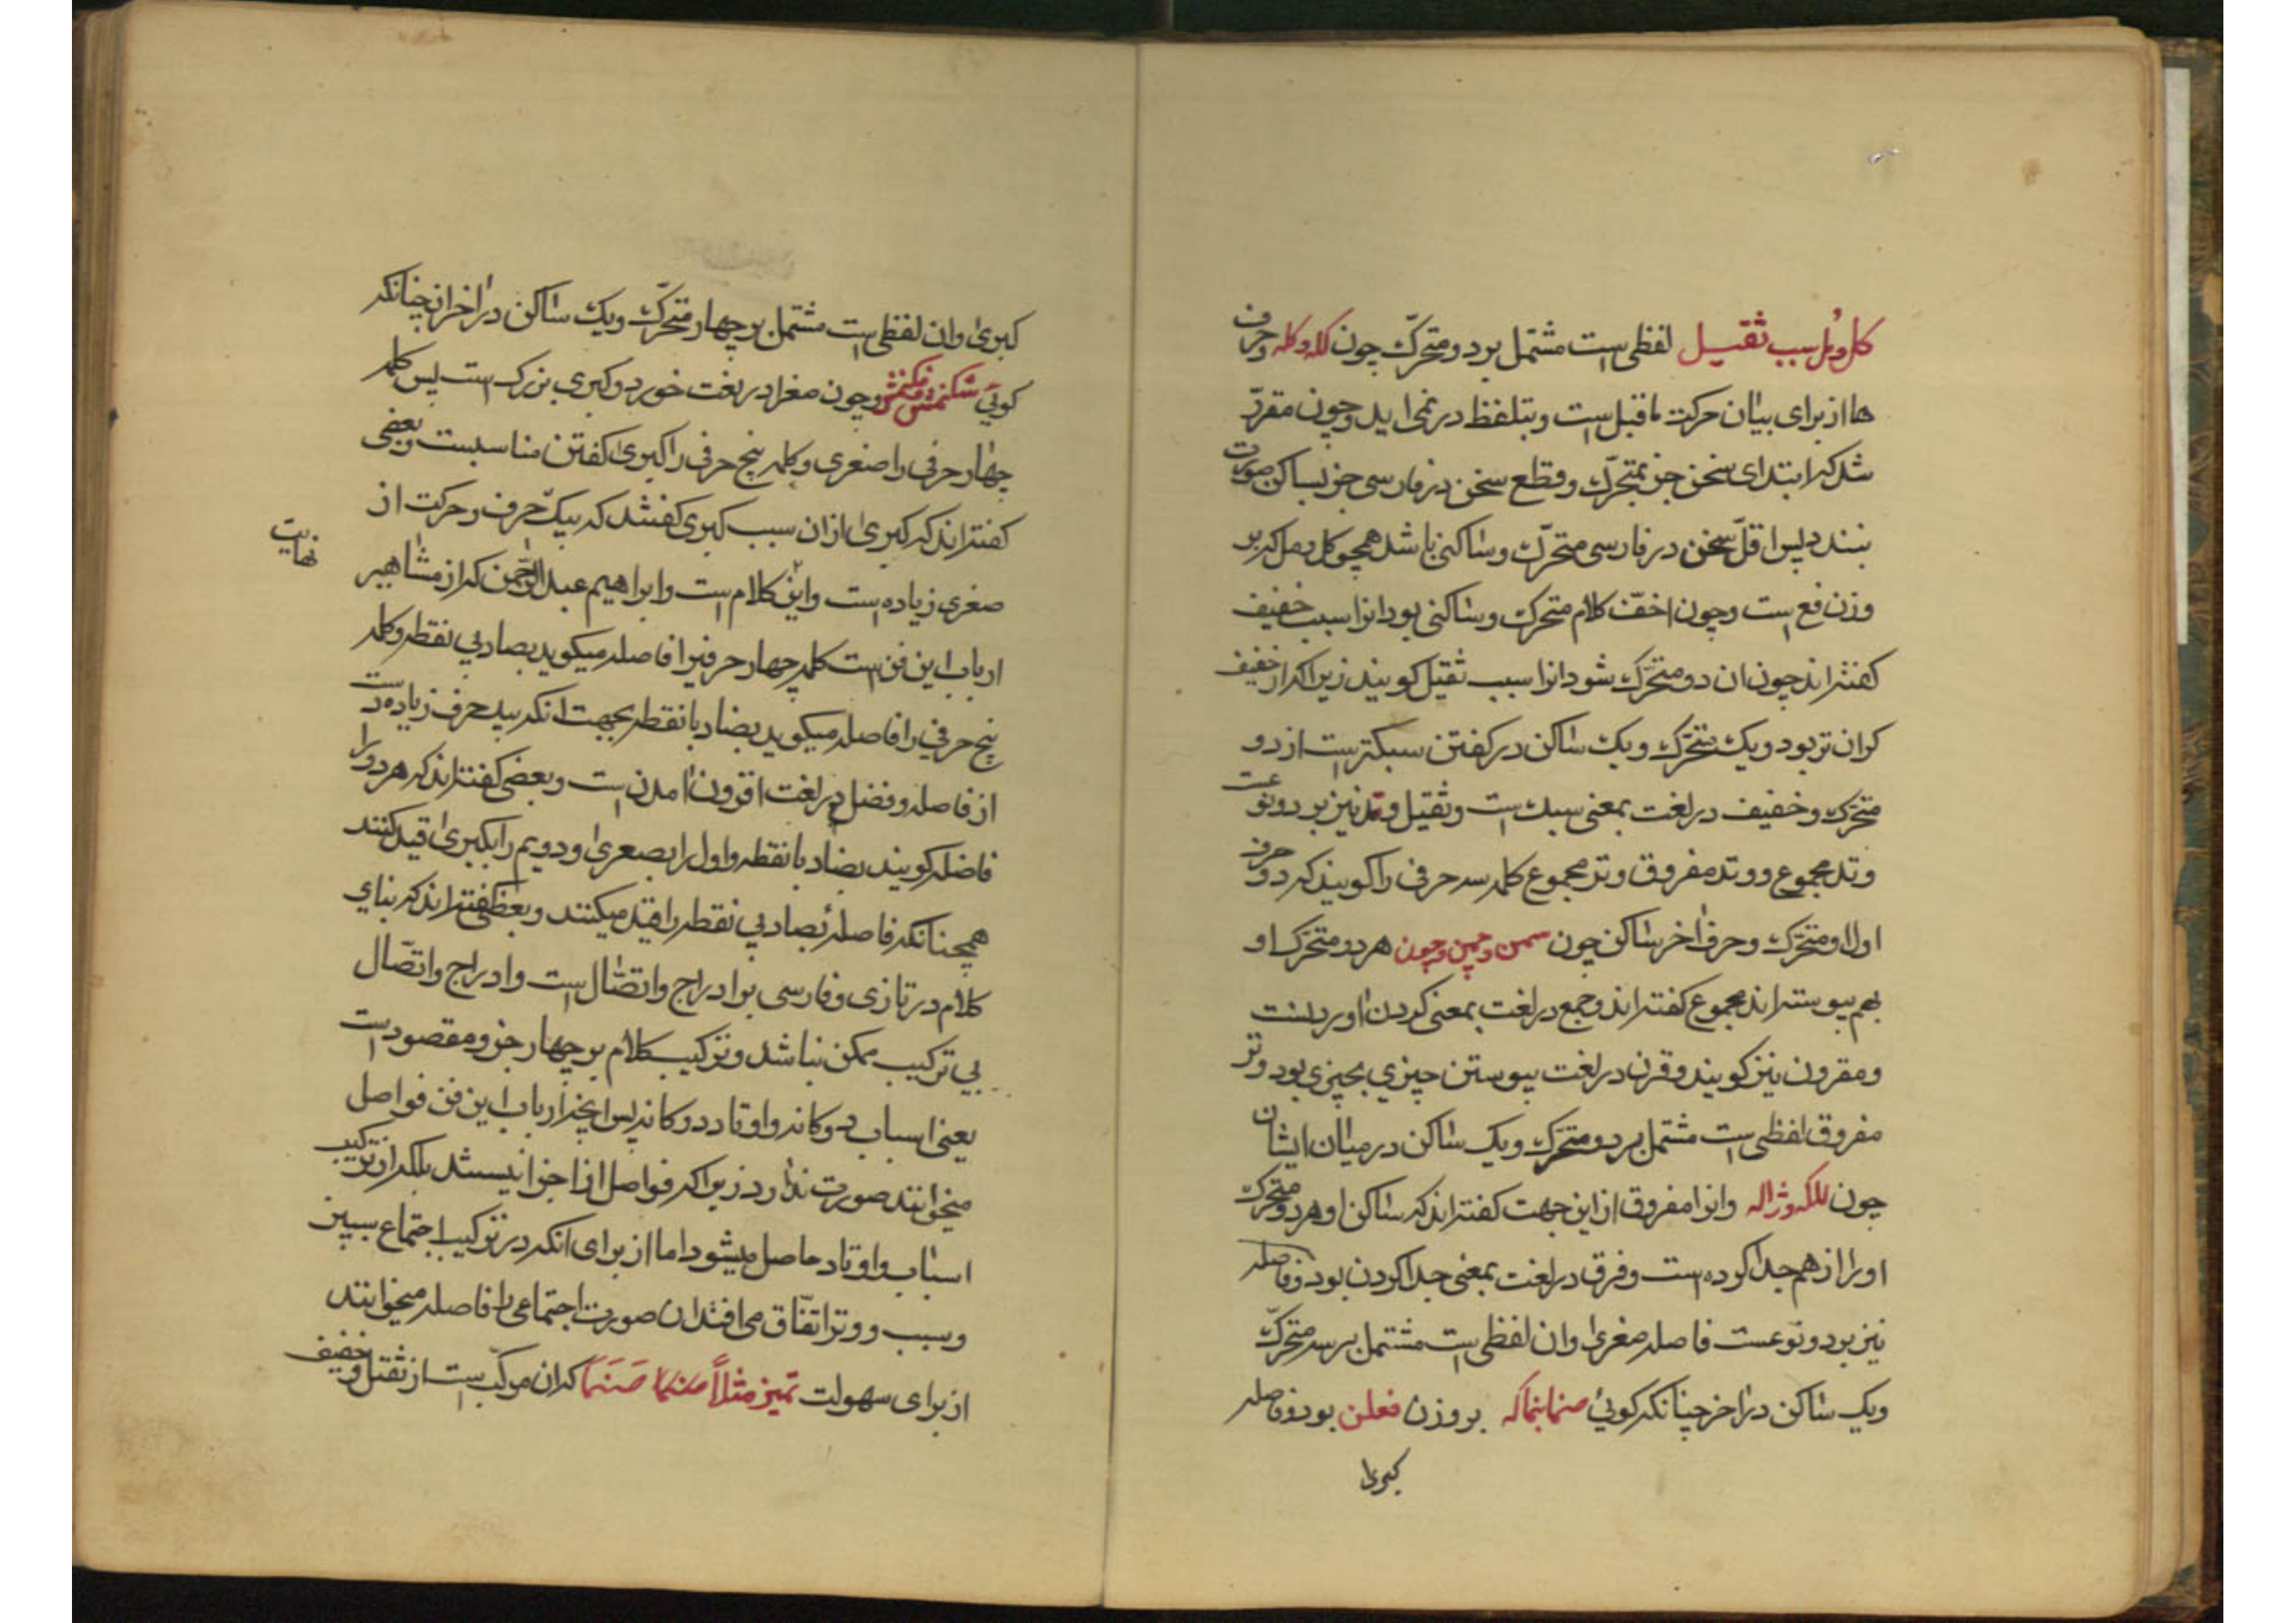 کل و مل سبب ثقیل لفظی است مشتمل بر دو متحرّک چون کله و کله و حرف
ها از برای بیان حرکت ماقبل است و بتلفظ در نمی اید و چون مقرّر
شد که ابتدای سخن جز بمتحرّک و قطع سخن در فارسی جز بساکن صورت
نبندد پس اقلّ سخن در فارسی متحرّک و ساکنی باشد همچو کل و مل که بر
وزن فع است و چون اخفّ کلام متحرک و ساکنی بود انرا سبب خفیف
کفته اند چون ان دو متحرّک شود انرا سبب ثقیل کویند زیرا که از خفیف
کران تر بود و یک متحرّک و یک ساکن در کفتن سبکتر است از دو
متحرّک و خفیف در لغت بمعنی سبک است و ثقیل و تد نیز بر دو نوعست
وتد مجموع و وتد مفروق وتد مجموع کلمه سه حرفی را کویند که دو حرف
اول او متحرّک و حرف اخر ساکن چون سمن و چمن و چون هر دو متحرک او
بهم پیوسته اند مجموع کفته اند و جمع در لغت بمعنی کردن اوردنست
و مقرون نیز کویند و قرن در لغت پیوستن چیزی بچیزی بود و تد
مفروق لفظی است مشتمل بر دو متحرّک و یک ساکن در میان ایشان
چون لاله و ژاله وانرا مفروق از این جهت کفته اند که ساکن او هر دو متحرک
او را از هم جدا کرده است و فرق در لغت بمعنی جدا کردن بود و فاصله
نیز بر دو نوعست فاصله صغری وان لفظی است مشتمل بر سه متحرّک
ویک ساکن در اخر چنانکه کوئی صنما بنما که بر وزن فعلن بود و فاصله
کبری
کبری وان لفظی است مشتمل بر چهار متحرّک ویک ساکن در اخر ان چنانکه
کوئی شکنمش فکنمش و چون صغرا در لغت خورد و کبری بزرک است پس کلمه
چهار حرفی را صغری و کلمه پنج حرفی را کبری کفتن مناسبست و بعضی
کفته اند که کبری از ان سبب کبری کفتند که بیک حرف و حرکت از
صغری زیاده است و این نهایت کلام است و ابراهیم عبد الرّحمن که از مشاهیر
ارباب این فن است کلمه چهار حرفیرا فاصله میکوید بصاد بی نقطه و کلمه
پنج حرفی را فاضله میکوید بضاد با نقطه بجهت انکه بیک حرف زیاده است
از فاصله و فضل در لغت افزون امدن است و بعضی کفته اند که هر دو را
فاضله کویند بضاد با نقطه و اول را بصغری و دویم را بکبری قید کنند
همچنانکه فاصله بصاد بی نقطه را قید میکنند و بعضی کفته اند که بنای
کلام در تازی و فارسی بر ادراج و اتصال است و ادراج و اتصّال
بی ترکیب ممکن نباشد و ترکیب کلام بر چهار جزو مقصود است
یعنی اسباب دوکانه و اوتاد دوکانه پس انچه ارباب این فن فواصل
میخوانند صورت ندارد زیرا که فواصل از اجزا نیستند بلکه از ترکیب
اسباب و اوتاد حاصل میشود اما از برای انکه در ترکیب اجتماع سببین
و سبب و وتد اتفّاق می افتد ان صورت اجتماعی را فاصله میخوانند
از برای سهولت تمیز مثلاً صنما صَنَمَا که ان مرکّب است از ثقیل و خفیف